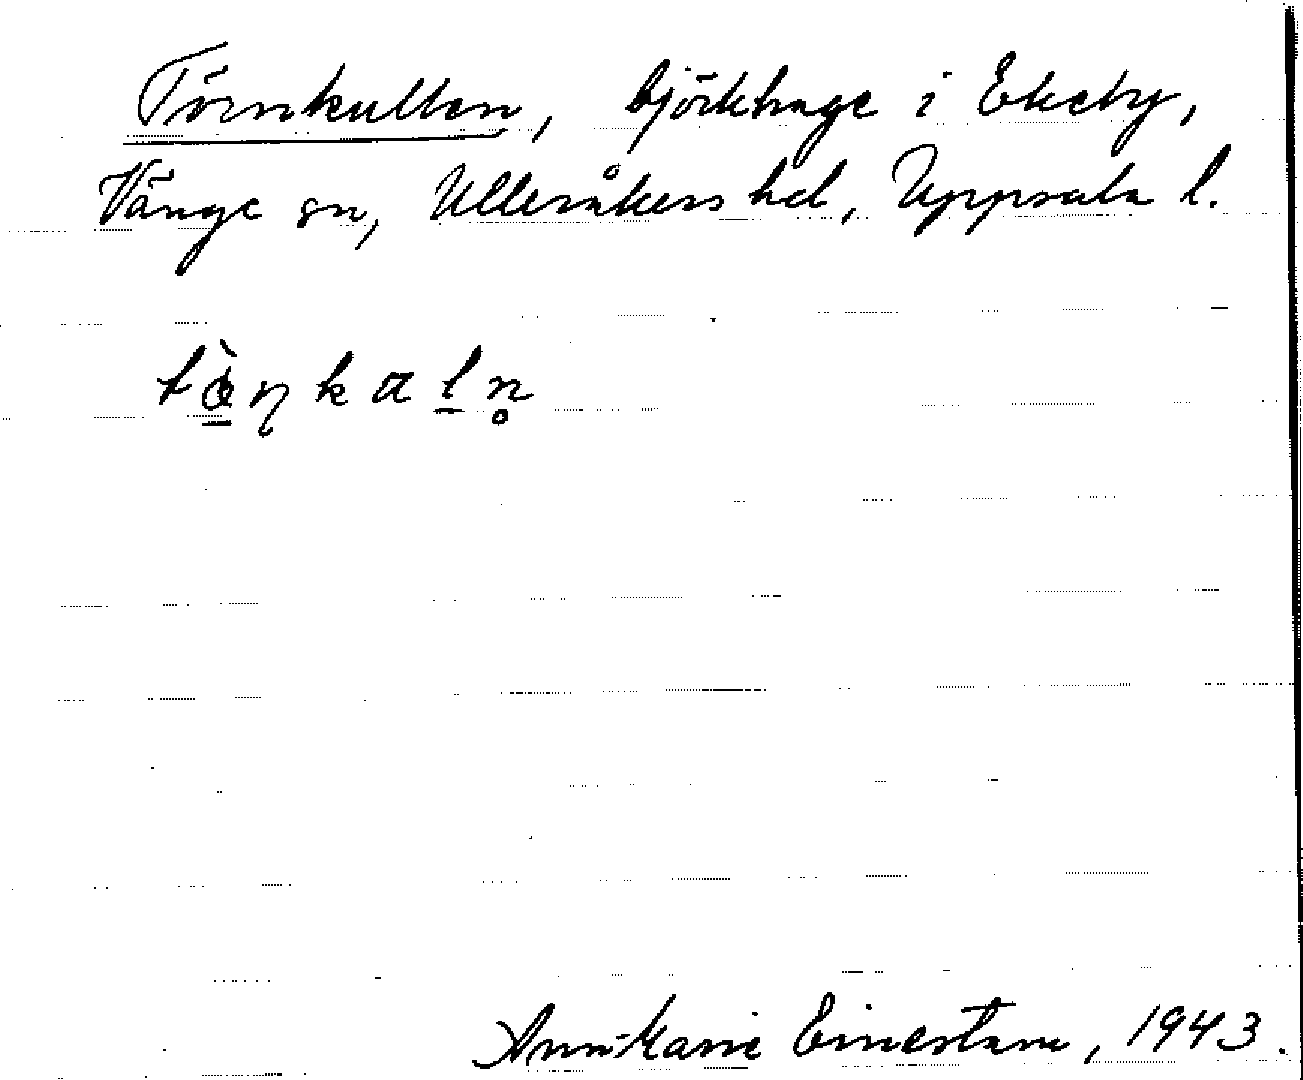 Törnkullen, björkhage i Ekeby,
Vänge sn, Ulleråkers hd, Uppsala l.
Ann-Marie Einestam, 1943.